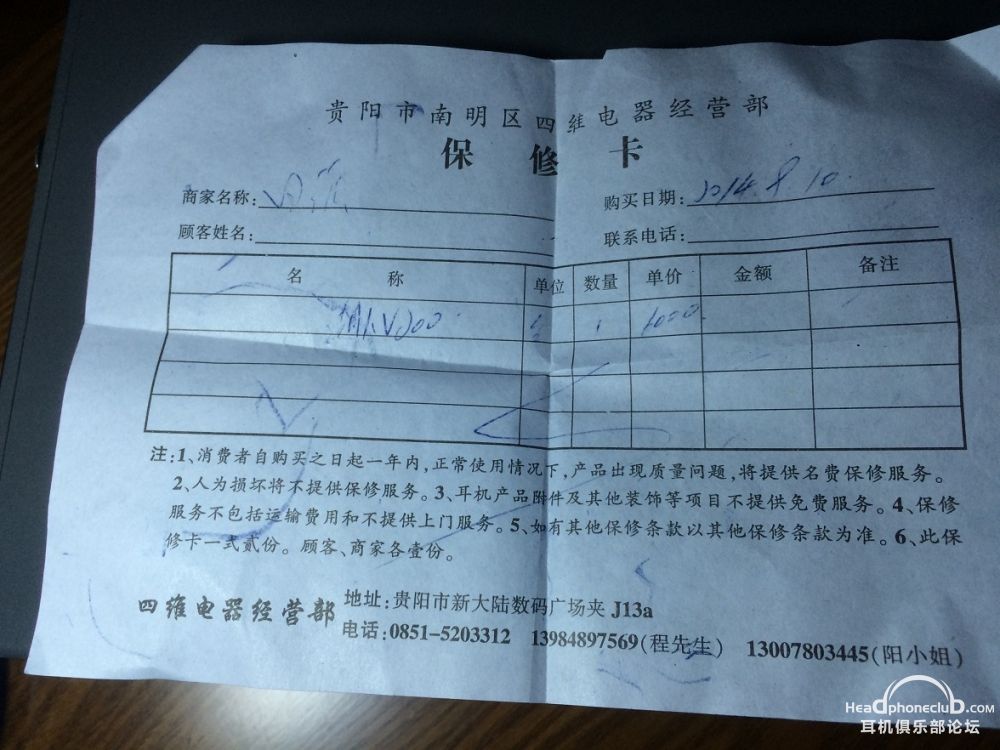 贵阳市南明区四维电器经营部
保修卡
商家名称: 购买日期: 2014.8.10.
顾客姓名: 联系电话:
名称 单位 数量 单价 金额 备注
1 1000
注:1、消费者自购买之日起一年内,正常使用情况下,产品出现质量问题,将提供名费保修服务。
2、人为损坏将不提供保修服务。3、耳机产品附件及其他装饰等项目不提供免费服务。4、保修
服务不包括运输费用和不提供上门服务。5、如有其他保修条款以其他保修条款为准。6、此保
修卡一式贰份。顾客、商家各壹份。
四维电器经营部 地址:贵阳市新大陆数码广场夹J13a
电话:0851-5203312 13984897569(程先生) 13007803445(阳小姐)
Headphoneclub.com
耳机俱乐部论坛